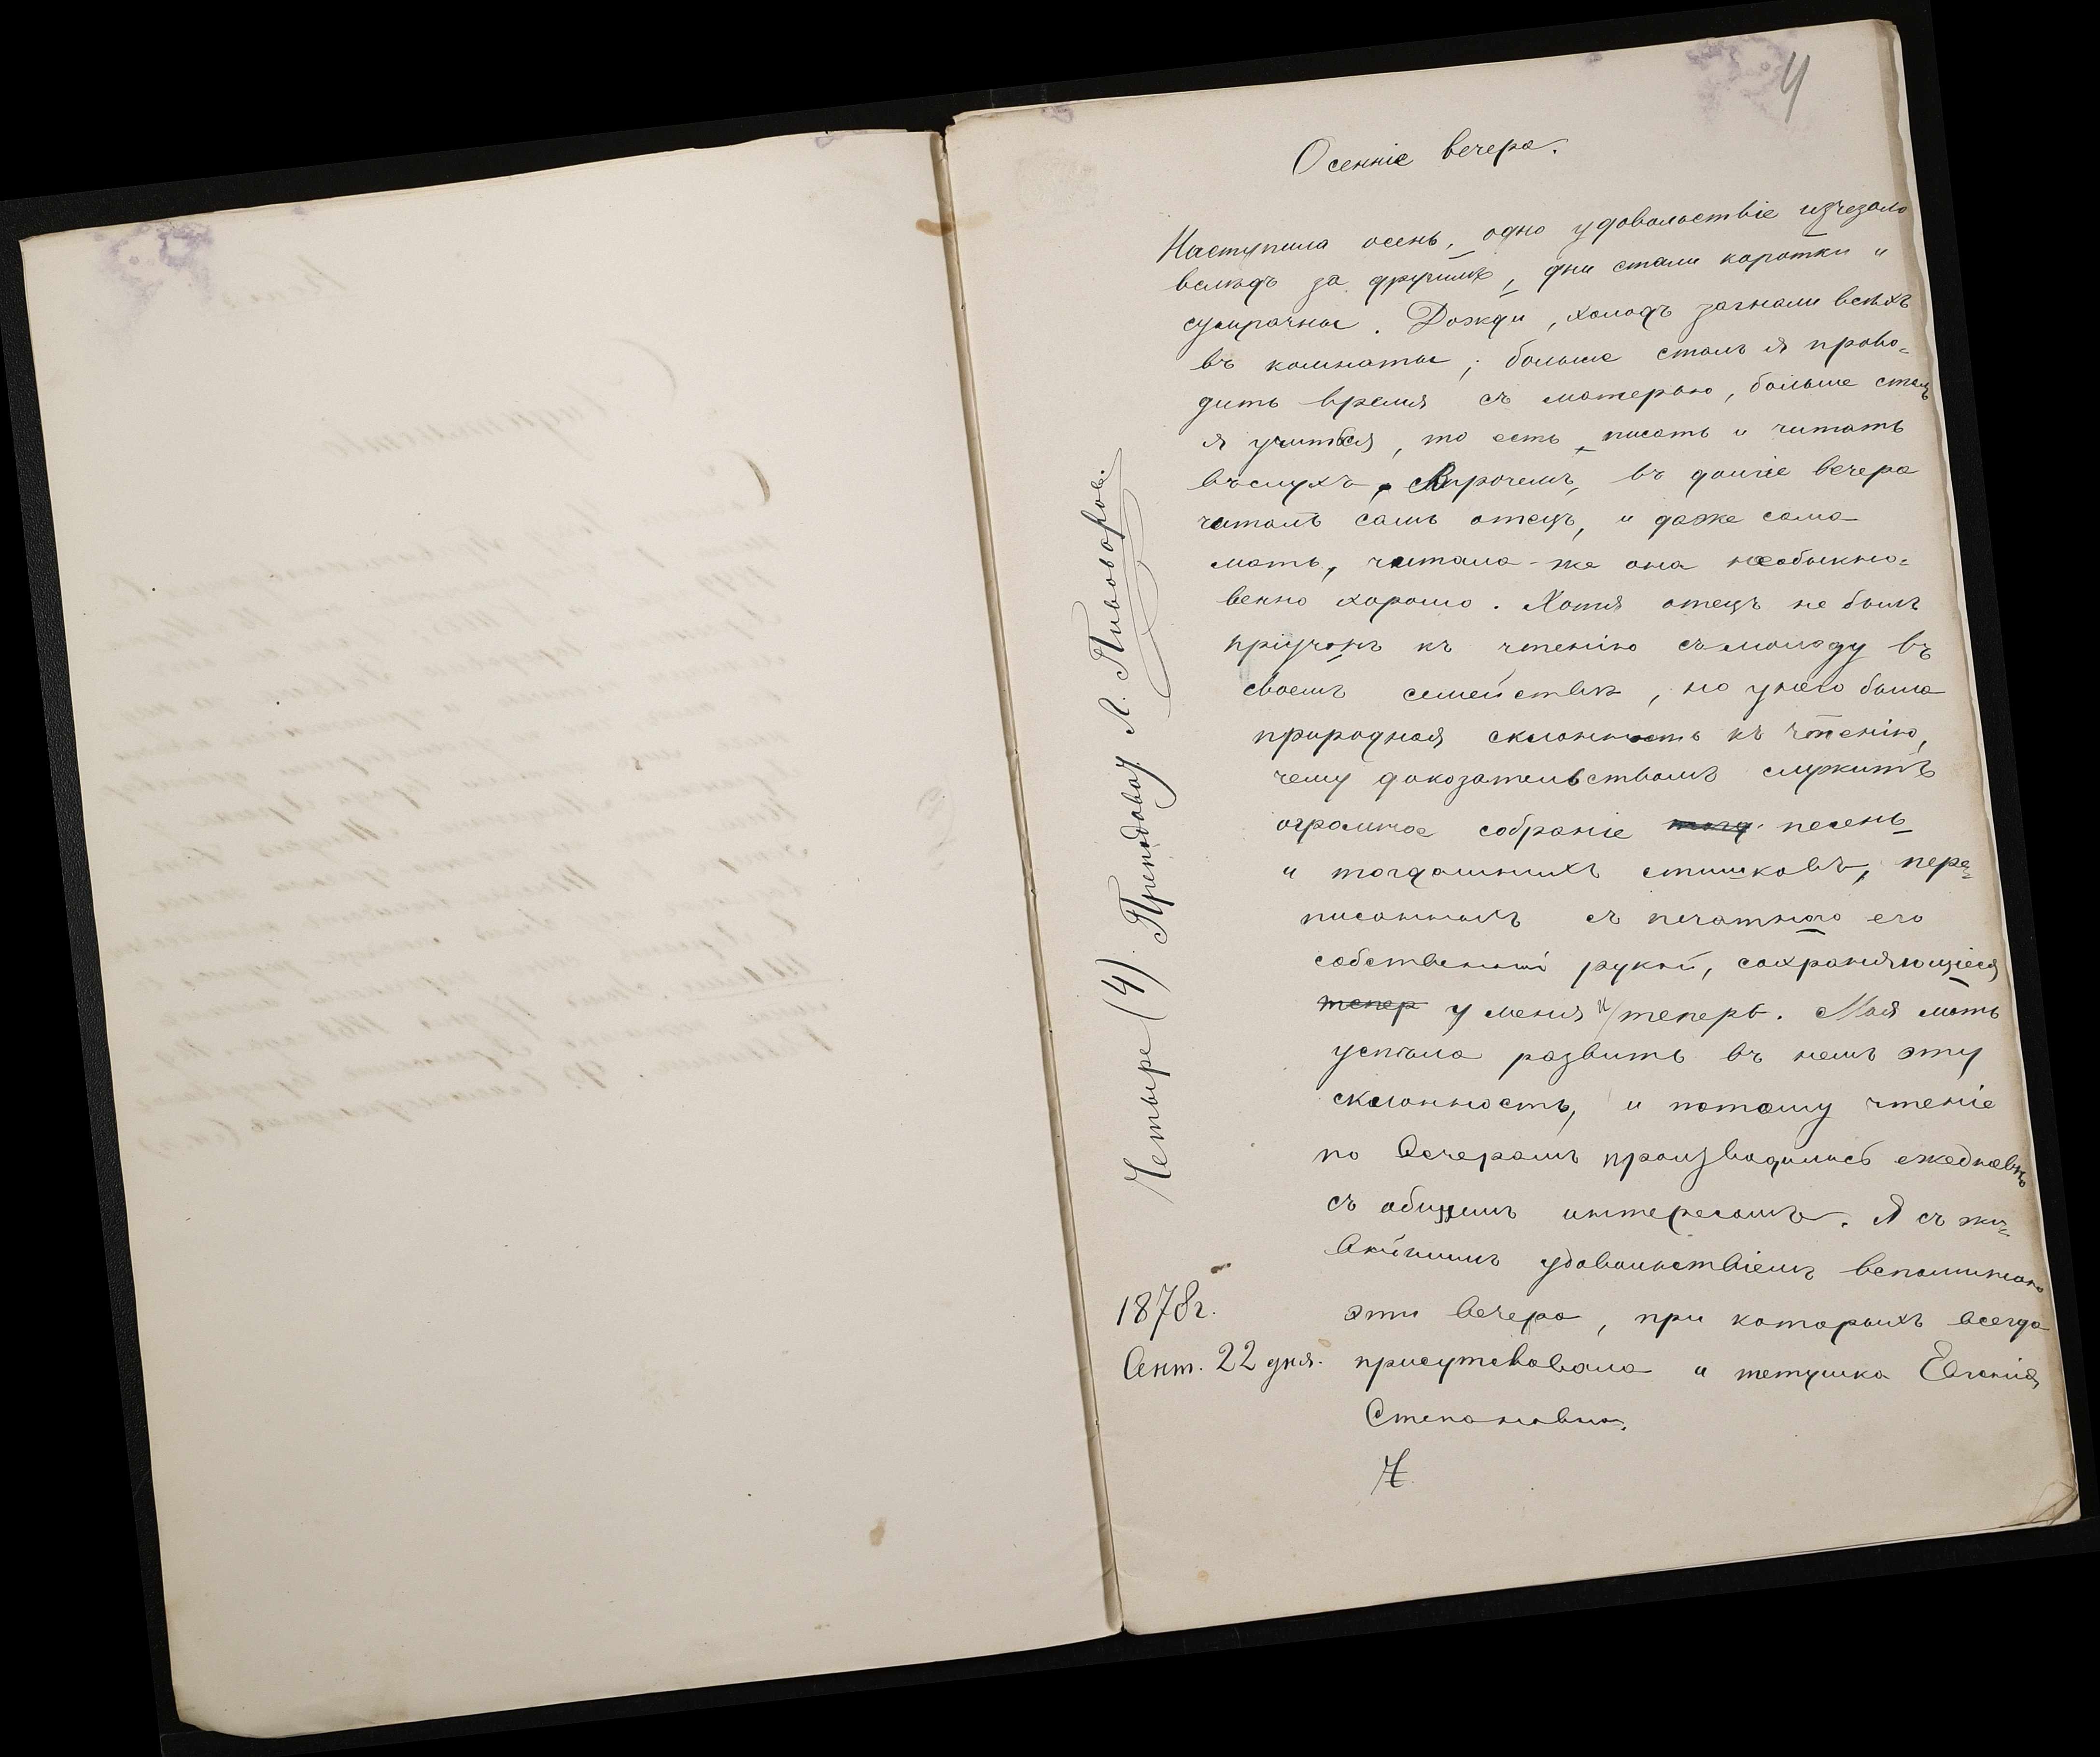 4
Осеннiе вечера.
Наступила осень, одно удовольствiе изчезало
вслѣдъ за другимъ, дни стали коротки и
сумрачны. Дожди, холодъ загнали всѣхъ
въ комнаты; больше сталъ я прово=
дить время съ матерью, больше сталъ
я учиться, то есть, писать и читать
въслухъ, Впрочемъ, въ долгiе вечера
читалъ самъ отецъ, и даже сама
мать, читала-же она необыкно=
венно хорошо. Хотя отецъ не былъ
прiучонъ къ чтенiю съмолоду въ
своемъ семействѣ, но у него была
природная склонность къ чтенiю,
чему доказательствомъ служитъ
огромное собранiе песень
и тогдашнихъ стишковъ, пере=
писанныхъ съ печатного его
собственной рукѣй, сохраняющiеся
тепер у меня и теперь. Моя мать
успѣла развить въ немъ эту
склонность, и потому чтенiе
по вечерамъ производилось ежедневно
съ общимъ интересомъ. Я съ жи=
вѣйшимъ удовольствiемъ вспоминаю
эти вечера, при которыхъ всегда
присутсвовала и тетушка Евгенiя
Степановна.
Четыре (4). Преподовау Л. Пивоваровъ.
1878г.
Сент. 22 дня.